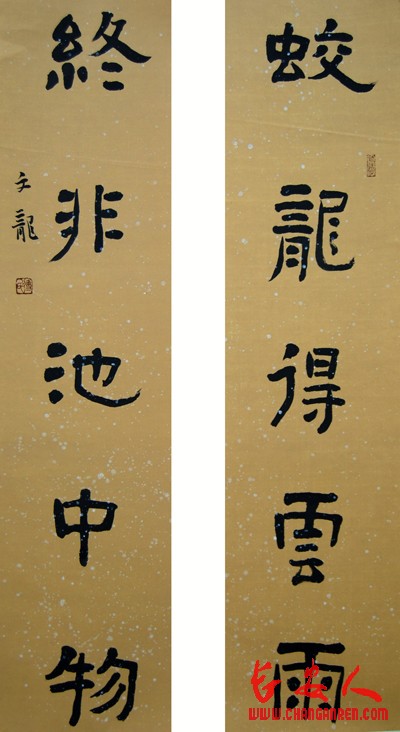 蛟龍得雲雨
終非池中物
文龍
长安人
WWW.CHANGANREN.COM